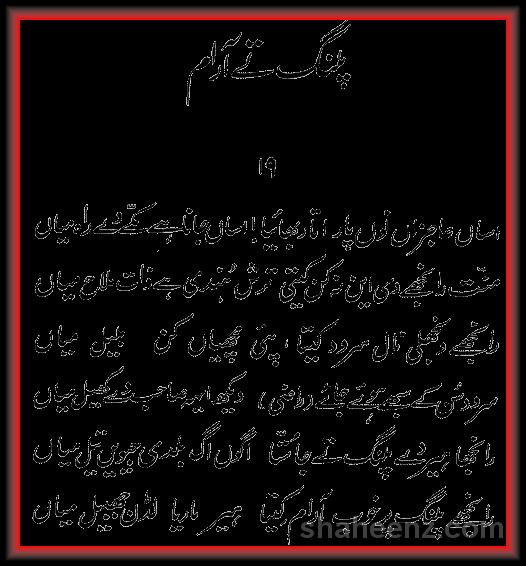 پلنگ تے آرام
۱۹
اساں عاجزاں نوں پار اتار بھائیا اساں جانا ہے مکے دے راہ میاں
منت رانجھے دی این نہ کن کیتی ترش ہندی ہے ذات ملاح میاں
رانجھے ونجھلی نال سرود کیتا ، پئی چھیاں کن بلیل میاں
سرود سن کے سبھے ہوئے راضی دیکھ امیر صاحب دے کھیل میاں
رانجھا ہیر دے پلنگ تے جا ستا اگوں اگ بلدی جیویں تیل میاں
رانجھے پلنگ پر خوب آرام کیتا ہیر ماریا لڈن جھبیل میاں
shaheenz.com